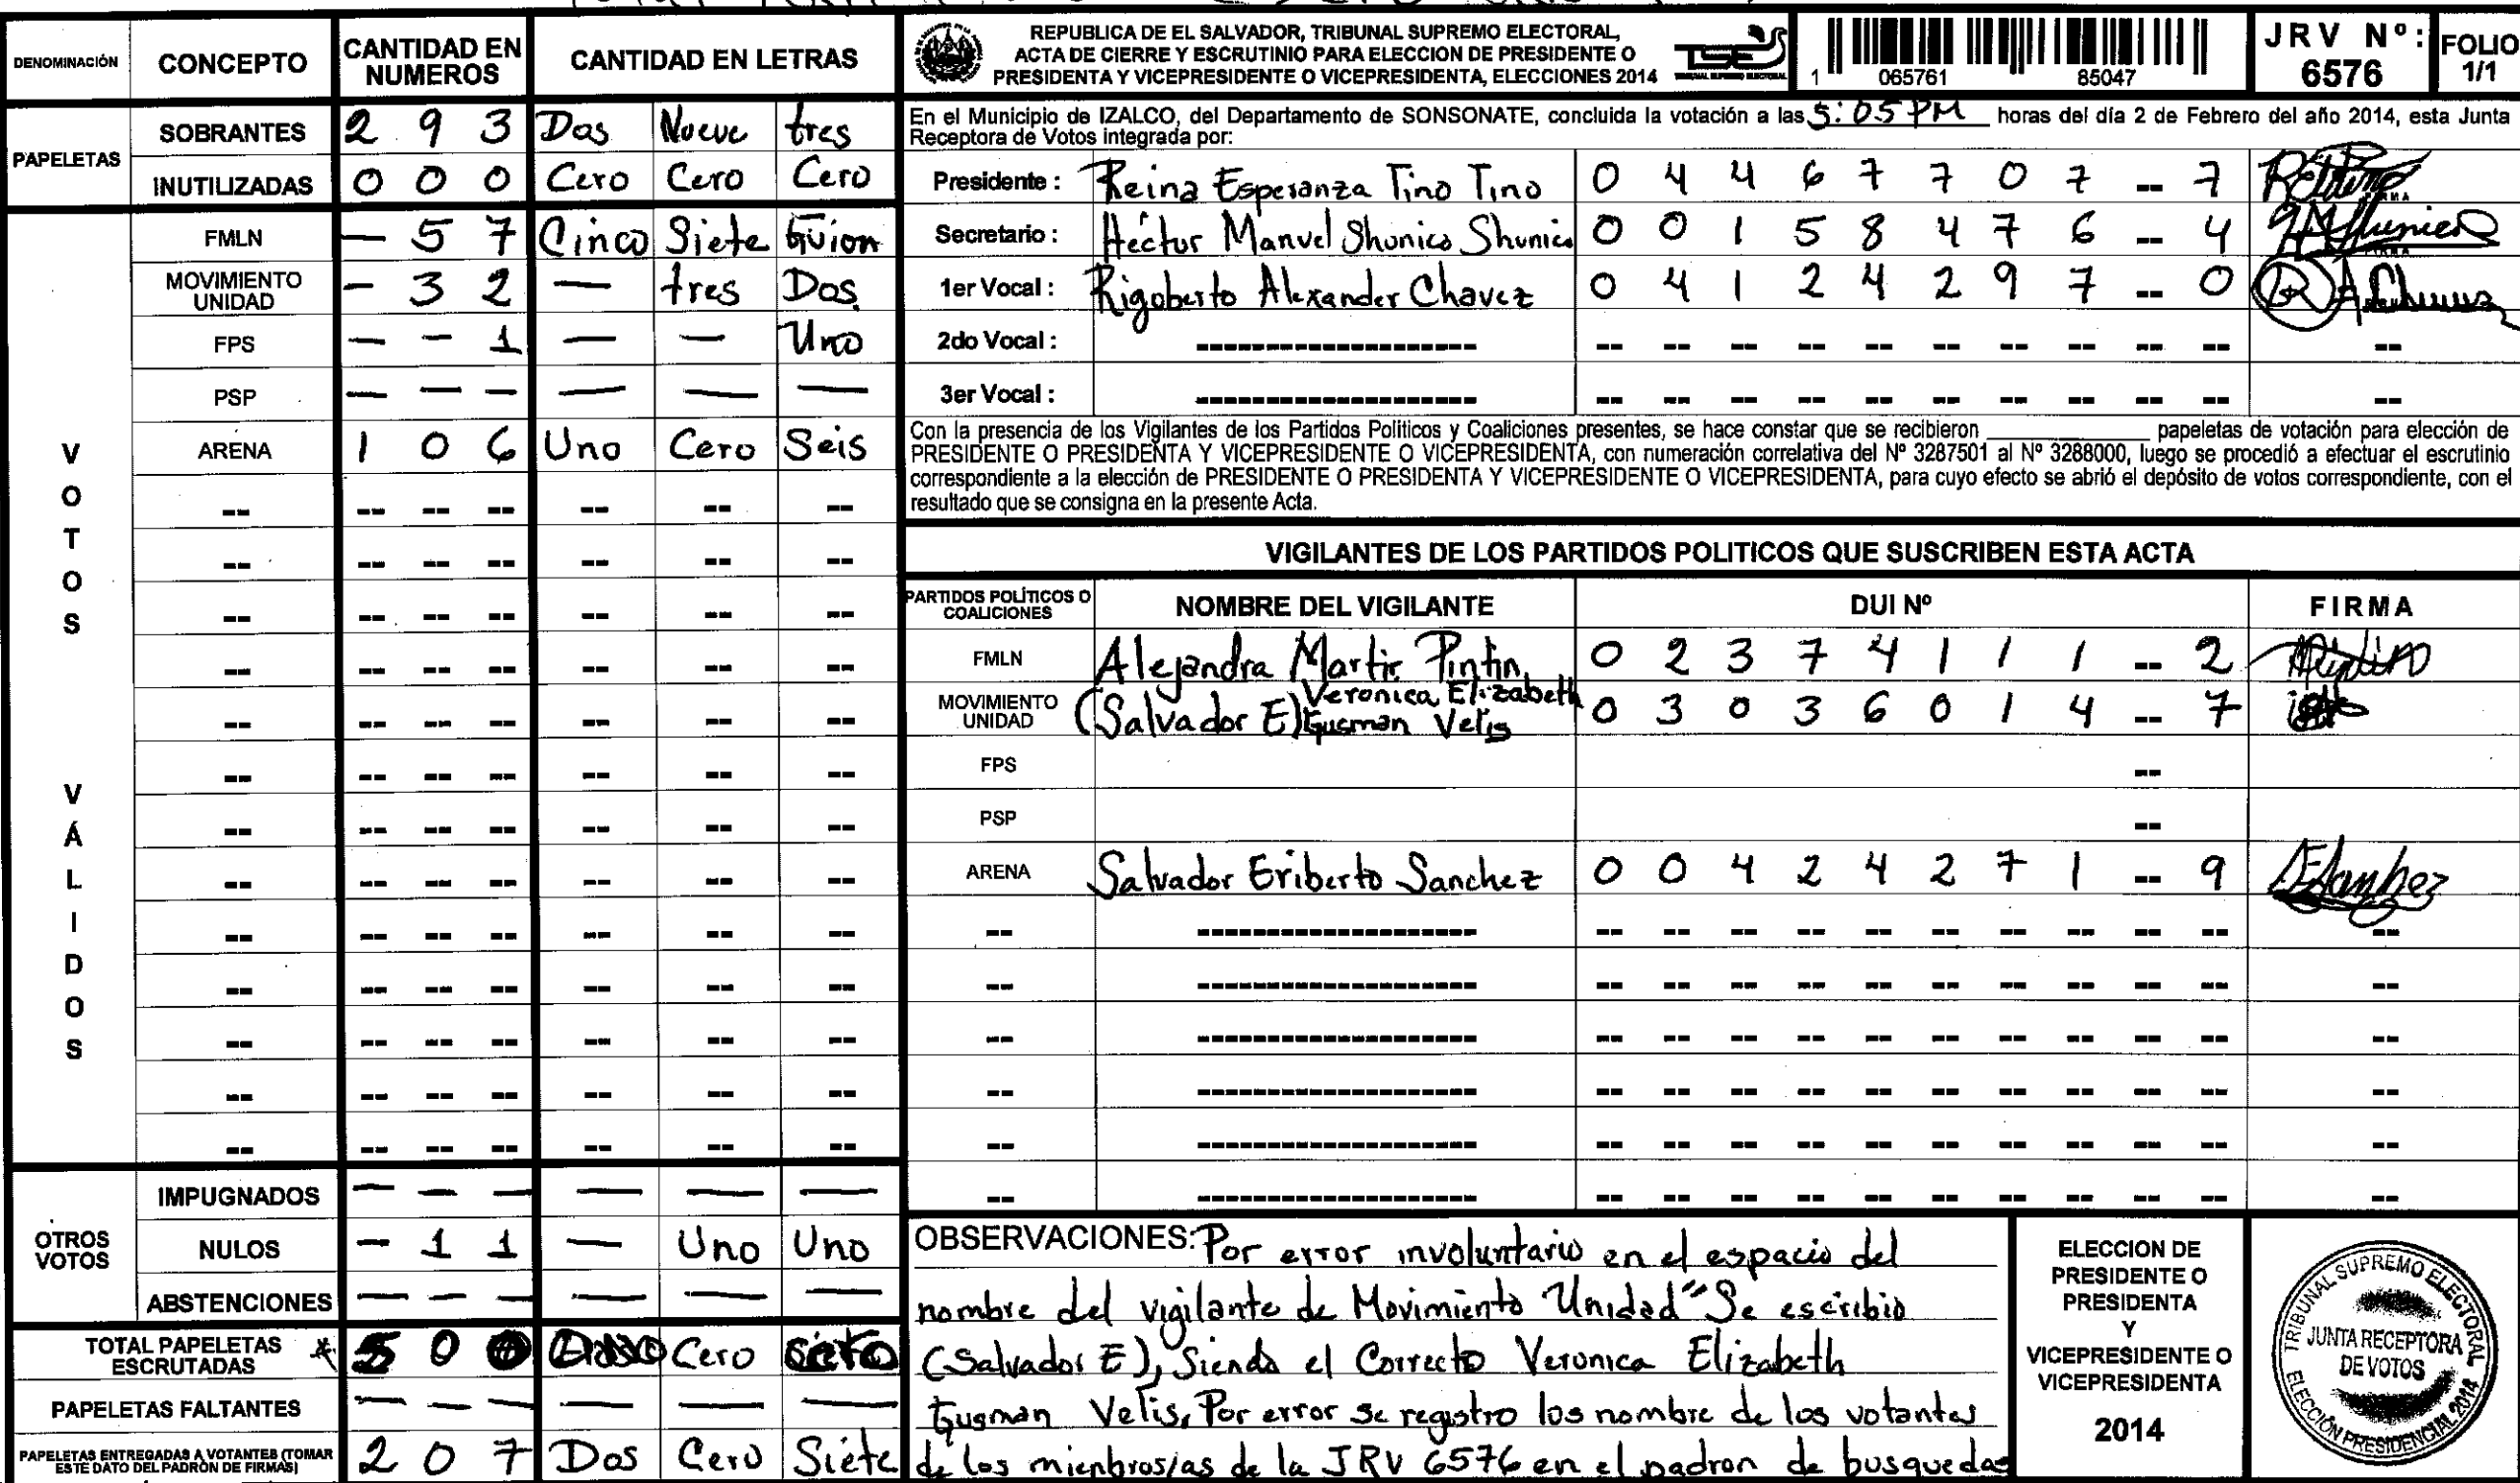 DENOMINACIÓN CONCEPTO CANTIDAD EN NUMEROS CANTIDAD EN LETRAS
PAPELETAS
SOBRANTES 2 9 3 Dos Nueve tres
INUTILIZADAS 0 0 0 Cero Cero Cero
VOTOS VÁLIDOS
FMLN — 5 7 Cinco Siete Guion
MOVIMIENTO UNIDAD — 3 2 — tres Dos
FPS — — 1 — — Uno
PSP — — — — — —
ARENA 1 0 6 Uno Cero Seis
-- -- -- -- -- -- --
-- -- -- -- -- -- --
-- -- -- -- -- -- --
-- -- -- -- -- -- --
-- -- -- -- -- -- --
-- -- -- -- -- -- --
-- -- -- -- -- -- --
-- -- -- -- -- -- --
-- -- -- -- -- -- --
-- -- -- -- -- -- --
-- -- -- -- -- -- --
-- -- -- -- -- -- --
-- -- -- -- -- -- --
OTROS VOTOS
IMPUGNADOS — — — — — —
NULOS — 1 1 — Uno Uno
ABSTENCIONES — — — — — —
TOTAL PAPELETAS ESCRUTADAS * 5 0 0 Cero
PAPELETAS FALTANTES — — — — — —
PAPELETAS ENTREGADAS A VOTANTES (TOMAR ESTE DATO DEL PADRÓN DE FIRMAS) 2 0 7 Dos Cero Siete
REPUBLICA DE EL SALVADOR, TRIBUNAL SUPREMO ELECTORAL,
ACTA DE CIERRE Y ESCRUTINIO PARA ELECCION DE PRESIDENTE O
PRESIDENTA Y VICEPRESIDENTE O VICEPRESIDENTA, ELECCIONES 2014
TSE
TRIBUNAL SUPREMO ELECTORAL
1 065761 85047
JRV Nº: 6576
FOLIO 1/1
En el Municipio de IZALCO, del Departamento de SONSONATE, concluida la votación a las 5:05 PM horas del día 2 de Febrero del año 2014, esta Junta
Receptora de Votos integrada por:
Presidente : Reina Esperanza Tino Tino 0 4 4 6 7 7 0 7 -- 7
Secretario : Héctor Manuel Shunico Shunico 0 0 1 5 8 4 7 6 -- 4
1er Vocal : Rigoberto Alexander Chavez 0 4 1 2 4 2 9 7 -- 0
2do Vocal : ------------------ -- -- -- -- -- -- -- -- -- -- --
3er Vocal : ------------------ -- -- -- -- -- -- -- -- -- -- --
Con la presencia de los Vigilantes de los Partidos Politicos y Coaliciones presentes, se hace constar que se recibieron ________ papeletas de votación para elección de
PRESIDENTE O PRESIDENTA Y VICEPRESIDENTE O VICEPRESIDENTA, con numeración correlativa del Nº 3287501 al Nº 3288000, luego se procedió a efectuar el escrutinio
correspondiente a la elección de PRESIDENTE O PRESIDENTA Y VICEPRESIDENTE O VICEPRESIDENTA, para cuyo efecto se abrió el depósito de votos correspondiente, con el
resultado que se consigna en la presente Acta.
VIGILANTES DE LOS PARTIDOS POLITICOS QUE SUSCRIBEN ESTA ACTA
PARTIDOS POLÍTICOS O COALICIONES NOMBRE DEL VIGILANTE DUI Nº FIRMA
FMLN Alejandra Martir Pintin 0 2 3 7 4 1 1 1 -- 2
MOVIMIENTO UNIDAD (Salvador E) Veronica Elizabeth Gusman Velis 0 3 0 3 6 0 1 4 -- 7
FPS --
PSP --
ARENA Salvador Eriberto Sanchez 0 0 4 2 4 2 7 1 -- 9
-- ------------------ -- -- -- -- -- -- -- -- -- -- --
-- ------------------ -- -- -- -- -- -- -- -- -- -- --
-- ------------------ -- -- -- -- -- -- -- -- -- -- --
-- ------------------ -- -- -- -- -- -- -- -- -- -- --
-- ------------------ -- -- -- -- -- -- -- -- -- -- --
-- ------------------ -- -- -- -- -- -- -- -- -- -- --
OBSERVACIONES: Por error involuntario en el espacio del
nombre del vigilante de Movimiento Unidad" Se escribio
(Salvador E), Siendo el Correcto Veronica Elizabeth
Gusman Velis, Por error se registro los nombre de los votantes
de los mienbros/as de la JRV 6576 en el padron de busquedas
ELECCION DE
PRESIDENTE O
PRESIDENTA
Y
VICEPRESIDENTE O
VICEPRESIDENTA
2014
TRIBUNAL SUPREMO ELECTORAL
JUNTA RECEPTORA
DE VOTOS
ELECCIÓN PRESIDENCIAL 2014